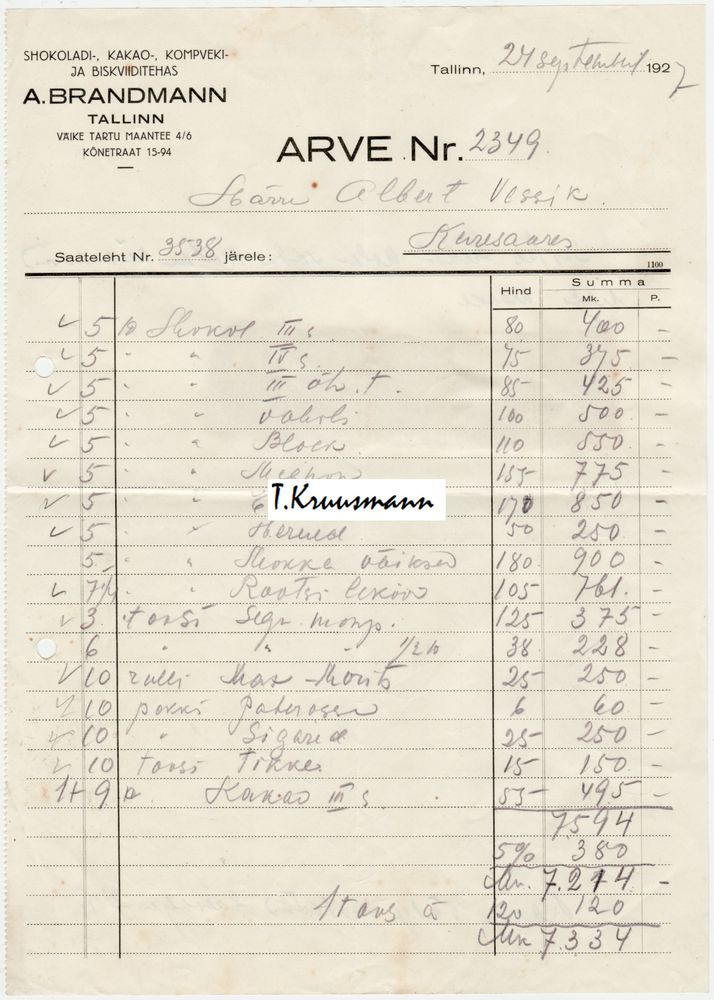 SHOKOLADI-, KAKAO-, KOMPVEKI-
JA BISKVIIDITEHAS
A. BRANDMANN
TALLINN
VÄIKE TARTU MAANTEE 4/6
KÕNETRAAT 15-94
Tallinn, 24 Septembril 1927
ARVE Nr. 2349.
Härra Albert Vessik.
Kuresaares
Saateleht Nr. 3538 järele:
1100
Hind Summa
Mk. P.
5 Shokol III s 80 400 -
5 " " IV s 75 375 -
5 " " III õh. t. 85 425 -
5 " " vahvli 100 500 -
5 " " Block 110 550 -
5 " " 155 775 -
5 " " 170 850 -
T.Kruusmann
5 " " Herned 50 250 -
5 " " Mokka väiksed 180 900 -
7¼ " " Rootsi 105 761 -
3 toosi Segu 125 375 -
6 " " " 1/2 38 228 -
10 rulli Max-Morits 25 250 -
10 pakki Paberossa 6 60 -
10 " Sigarid 25 250 -
10 toosi Tikke 15 150 -
1+ 9 Kakao III s 55 495 -
7594
5% 380
Mk. 7.214 -
1 toos à 120 120
Mk 7.334